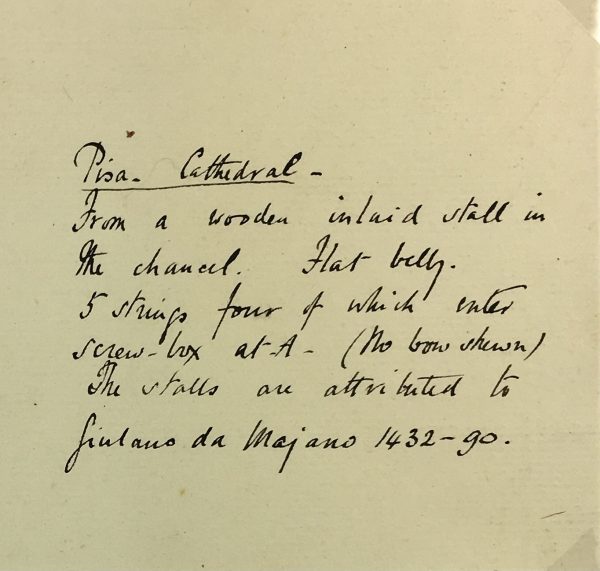 Pisa. Cathedral -
From a wooden inlaid stall in
the chancel. Flat belly.
5 strings four of which enter
screw-box at A - (No bow shewn)
The stalls are attributed to
Giulano da Majano 1432-90.